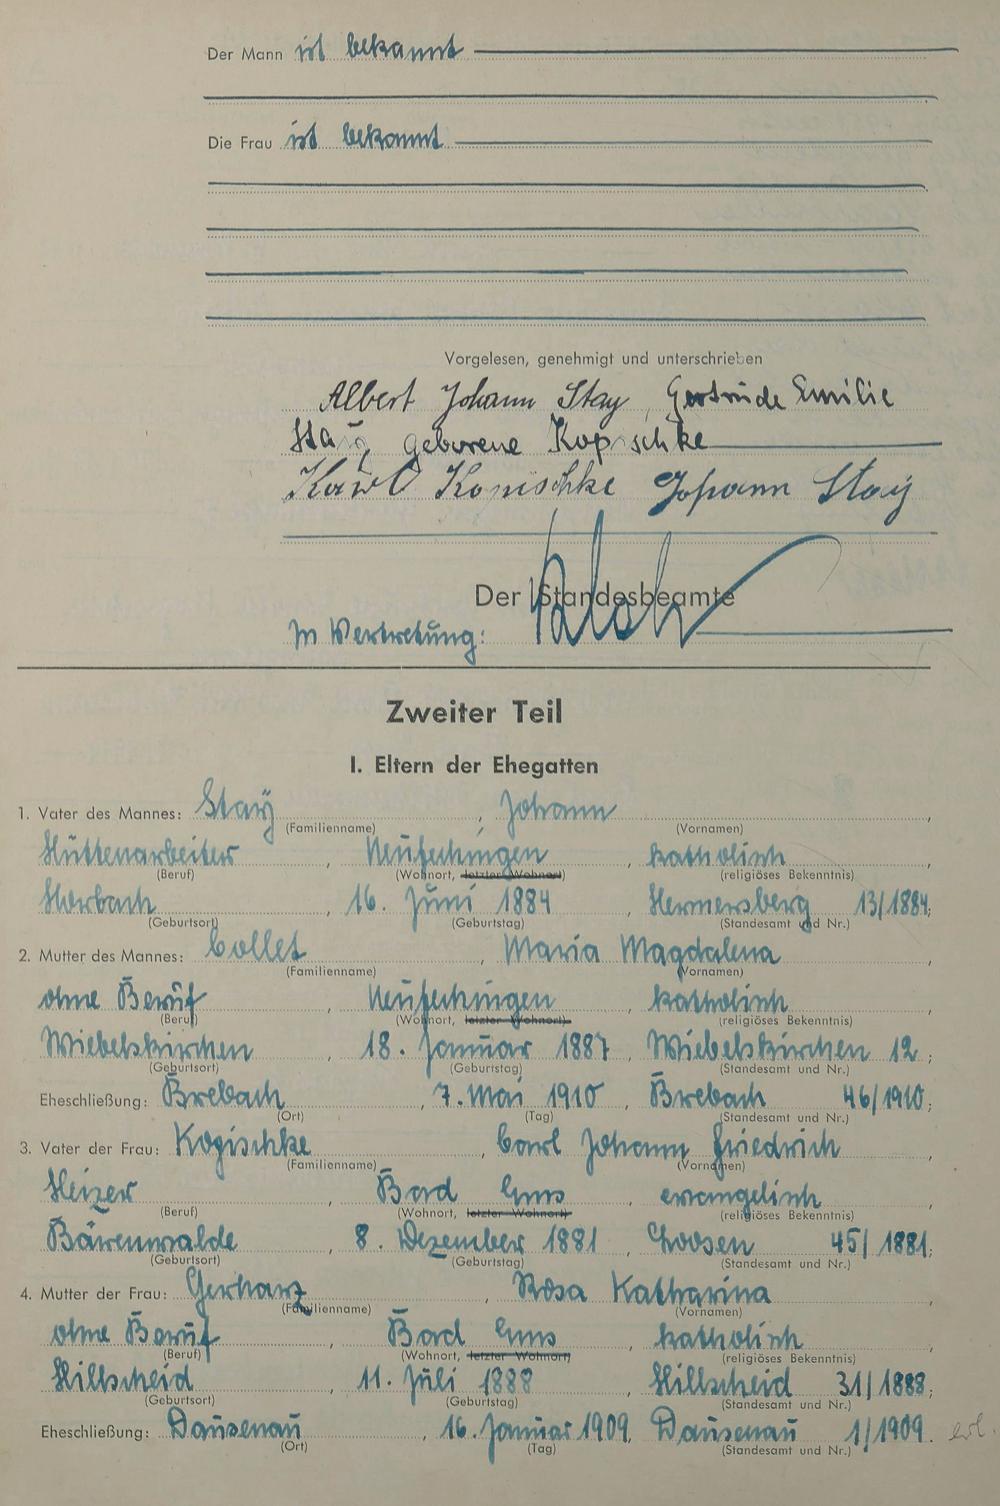 Der Mann ist bekannt
Die Frau ist bekannt
Vorgelesen, genehmigt und unterschrieben
Albert Johann Stay, Gertrude Emilie
Staÿ, geborene Kopischke
Karl Kopischke Johann Stay
Der Standesbeamte
In Vertretung:
Zweiter Teil
I. Eltern der Ehegatten
1. Vater des Mannes: Staÿ, Johann,
(Familienname) (Vornamen)
Hüttenarbeiter, Neufechingen, katholisch,
(Beruf) (Wohnort, letzter Wohnort) (religiöses Bekenntnis)
Horbach, 16. Juni 1884, Hermersberg 13/1884;
(Geburtsort) (Geburtstag) (Standesamt und Nr.)
2. Mutter des Mannes: Collet, Maria Magdalena,
(Familienname) (Vornamen)
ohne Beruf, Neufechingen, katholisch,
(Beruf) (Wohnort, letzter Wohnort) (religiöses Bekenntnis)
Wiebelskirchen, 18. Januar 1887, Wiebelskirchen 12;
(Geburtsort) (Geburtstag) (Standesamt und Nr.)
Eheschließung: Brebach, 7. Mai 1910, Brebach 46/1910;
(Ort) (Tag) (Standesamt und Nr.)
3. Vater der Frau: Kopischke, Carl Johann Friedrich,
(Familienname) (Vornamen)
Heizer, Bad Ems, evangelisch,
(Beruf) (Wohnort, letzter Wohnort) (religiöses Bekenntnis)
Bärenwalde, 8. Dezember 1881, Loosen 45/1881;
(Geburtsort) (Geburtstag) (Standesamt und Nr.)
4. Mutter der Frau: Gerharz, Rosa Katharina,
(Familienname) (Vornamen)
ohne Beruf, Bad Ems, katholisch,
(Beruf) (Wohnort, letzter Wohnort) (religiöses Bekenntnis)
Hillscheid, 11. Juli 1888, Hillscheid 31/1888;
(Geburtsort) (Geburtstag) (Standesamt und Nr.)
Eheschließung: Dausenau, 16. Januar 1909, Dausenau 1/1909. erl.
(Ort) (Tag) (Standesamt und Nr.)